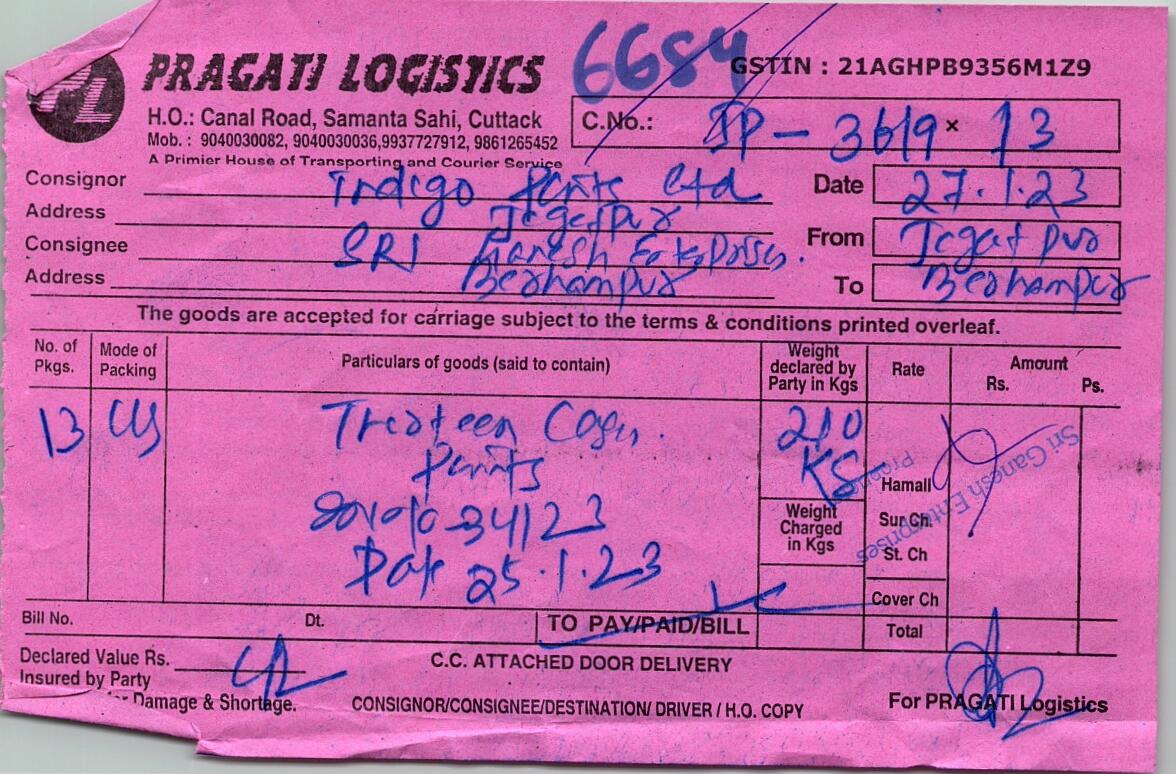 PL
PRAGATI LOGISTICS
6684
GSTIN : 21AGHPB9356M1Z9
H.O.: Canal Road, Samanta Sahi, Cuttack
Mob. : 9040030082, 9040030036,9937727912, 9861265452
A Primier House of Transporting and Courier Service
C.No.: JP - 3619 x 13
Consignor Indigo Paints Ltd
Date 27.1.23
Address Jagatpur
Consignee SRI Ganesh Enterprises.
From Jagatpur
Address Berhampur
To Berhampur
The goods are accepted for carriage subject to the terms & conditions printed overleaf.
No. of Pkgs.
Mode of Packing
Particulars of goods (said to contain)
Weight declared by Party in Kgs
Rate
Amount
Rs. Ps.
13
Thirteen
Paints
34123
Date 25.1.23
210
KG
Weight Charged in Kgs
Hamali
Sur Ch.
St. Ch
Cover Ch
Total
Sri Ganesh Enterprises
Bill No. Dt.
TO PAY/PAID/BILL
Declared Value Rs.
Insured by Party
for Damage & Shortage.
C.C. ATTACHED DOOR DELIVERY
CONSIGNOR/CONSIGNEE/DESTINATION/ DRIVER / H.O. COPY
For PRAGATI Logistics